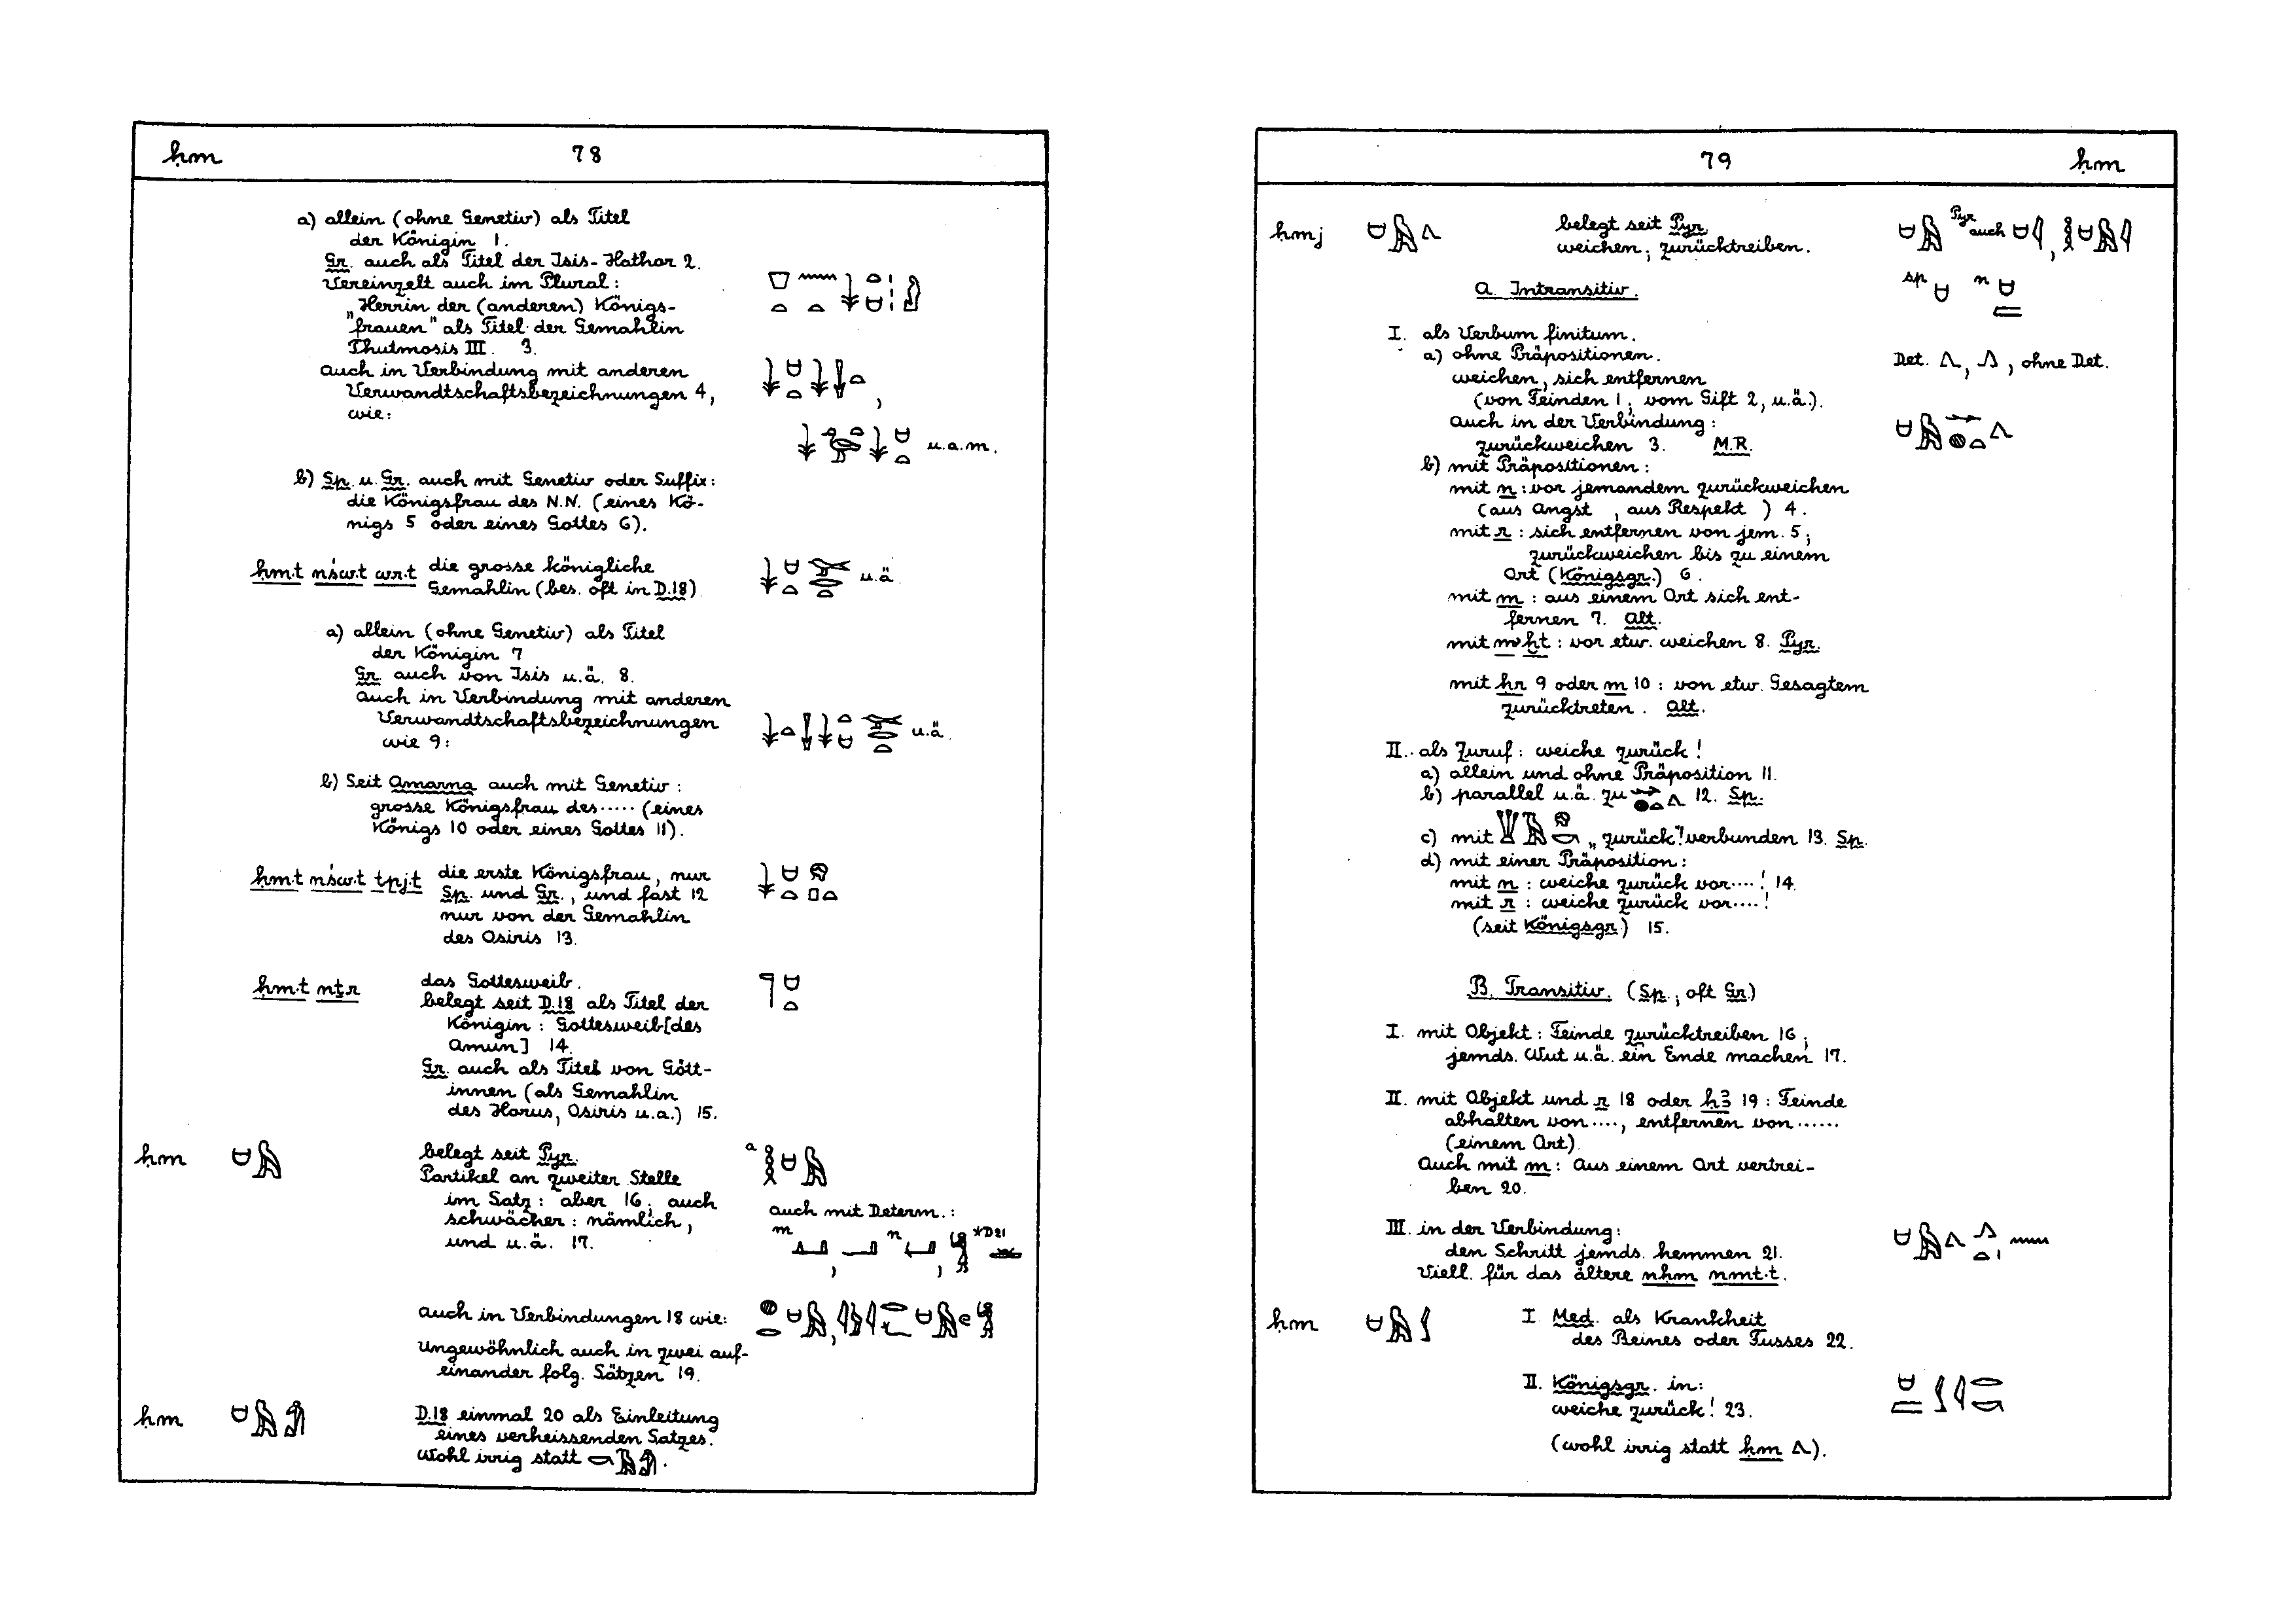 ḥm 78
a) allein (ohne Genetiv) als Titel
der Königin 1.
Gr. auch als Titel der Isis-Hathor 2.
Vereinzelt auch im Plural:
„Herrin der (anderen) Königs-
frauen" als Titel der Gemahlin
Thutmosis III. 3.
auch in Verbindung mit anderen
Verwandtschaftsbezeichnungen 4,
wie:
u.a.m.
b) Sp. u. Gr. auch mit Genetiv oder Suffix:
die Königsfrau des N.N. (eines Kö-
nigs 5 oder eines Gottes 6).
ḥm·t nśw·t wr·t die grosse königliche
Gemahlin (bes. oft in D.18) u.ä.
a) allein (ohne Genetiv) als Titel
der Königin 7
Gr. auch von Isis u.ä. 8.
auch in Verbindung mit anderen
Verwandtschaftsbezeichnungen
wie 9: u.ä.
b) Seit Amarna auch mit Genetiv:
grosse Königsfrau des ····· (eines
Königs 10 oder eines Gottes 11).
ḥm·t nśw·t tpj·t die erste Königsfrau, nur
Sp. und Gr., und fast 12
nur von der Gemahlin
des Osiris 13.
ḥm·t nṯr das Gottesweib.
belegt seit D.18 als Titel der
Königin: Gottesweib [des
Amun] 14.
Gr. auch als Titel von Gött-
innen (als Gemahlin
des Horus, Osiris u.a.) 15.
ḥm belegt seit Pyr. a
Partikel an zweiter Stelle
im Satz: aber 16; auch
schwächer: nämlich,
und u.ä. 17.
auch mit Determ.:
m , n , *D21
auch in Verbindungen 18 wie:
Ungewöhnlich auch in zwei auf-
einander folg. Sätzen 19.
ḥm D.18 einmal 20 als Einleitung
eines verheissenden Satzes.
Wohl irrig statt .
79 ḥm
ḥmj belegt seit Pyr. Pyr auch ,
weichen; zurücktreiben.
Sp n
A. Intransitiv.
I. als Verbum finitum.
a) ohne Präpositionen. Det. , , ohne Det.
weichen, sich entfernen
(von Feinden 1; vom Gift 2, u.ä.).
Auch in der Verbindung:
zurückweichen 3. M.R.
b) mit Präpositionen:
mit n: vor jemandem zurückweichen
(aus Angst , aus Respekt ) 4.
mit r: sich entfernen von jem. 5;
zurückweichen bis zu einem
Ort (Königsgr.) 6.
mit m: aus einem Ort sich ent-
fernen 7. Alt.
mit m ḫt: vor etw. weichen 8. Pyr.
mit ḥr 9 oder m 10: von etw. Gesagtem
zurücktreten. Alt.
II. als Zuruf: weiche zurück!
a) allein und ohne Präposition 11.
b) parallel u.ä. zu 12. Sp.
c) mit „zurück!" verbunden 13. Sp.
d) mit einer Präposition:
mit n: weiche zurück vor ····! 14.
mit r: weiche zurück vor ····!
(seit Königsgr.) 15.
B. Transitiv. (Sp.; oft Gr.)
I. mit Objekt: Feinde zurücktreiben 16;
jemds. Wut u.ä. ein Ende machen 17.
II. mit Objekt und r 18 oder ḥꜣ 19: Feinde
abhalten von ····, entfernen von ······
(einem Ort).
Auch mit m: aus einem Ort vertrei-
ben 20.
III. in der Verbindung:
den Schritt jemds. hemmen 21.
Viell. für das ältere nḥm nmt·t.
ḥm I. Med. als Krankheit
des Beines oder Fusses 22.
II. Königsgr. in:
weiche zurück! 23.
(wohl irrig statt ḥm ).